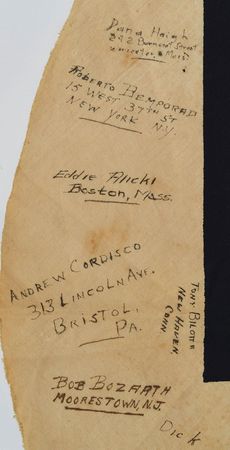 Dana Haigh
Street
Worcester, Mass.
ROBERTO BEMPORAD
15 WEST 37TH ST
NEW YORK N.Y.
Eddie
Boston, Mass.
ANDREW CORDISCO
313 LINCOLN AVE.
BRISTOL,
PA.
TONY
NEW HAVEN
CONN
BOB BOZARTH
MOORESTOWN, N.J.
Dick